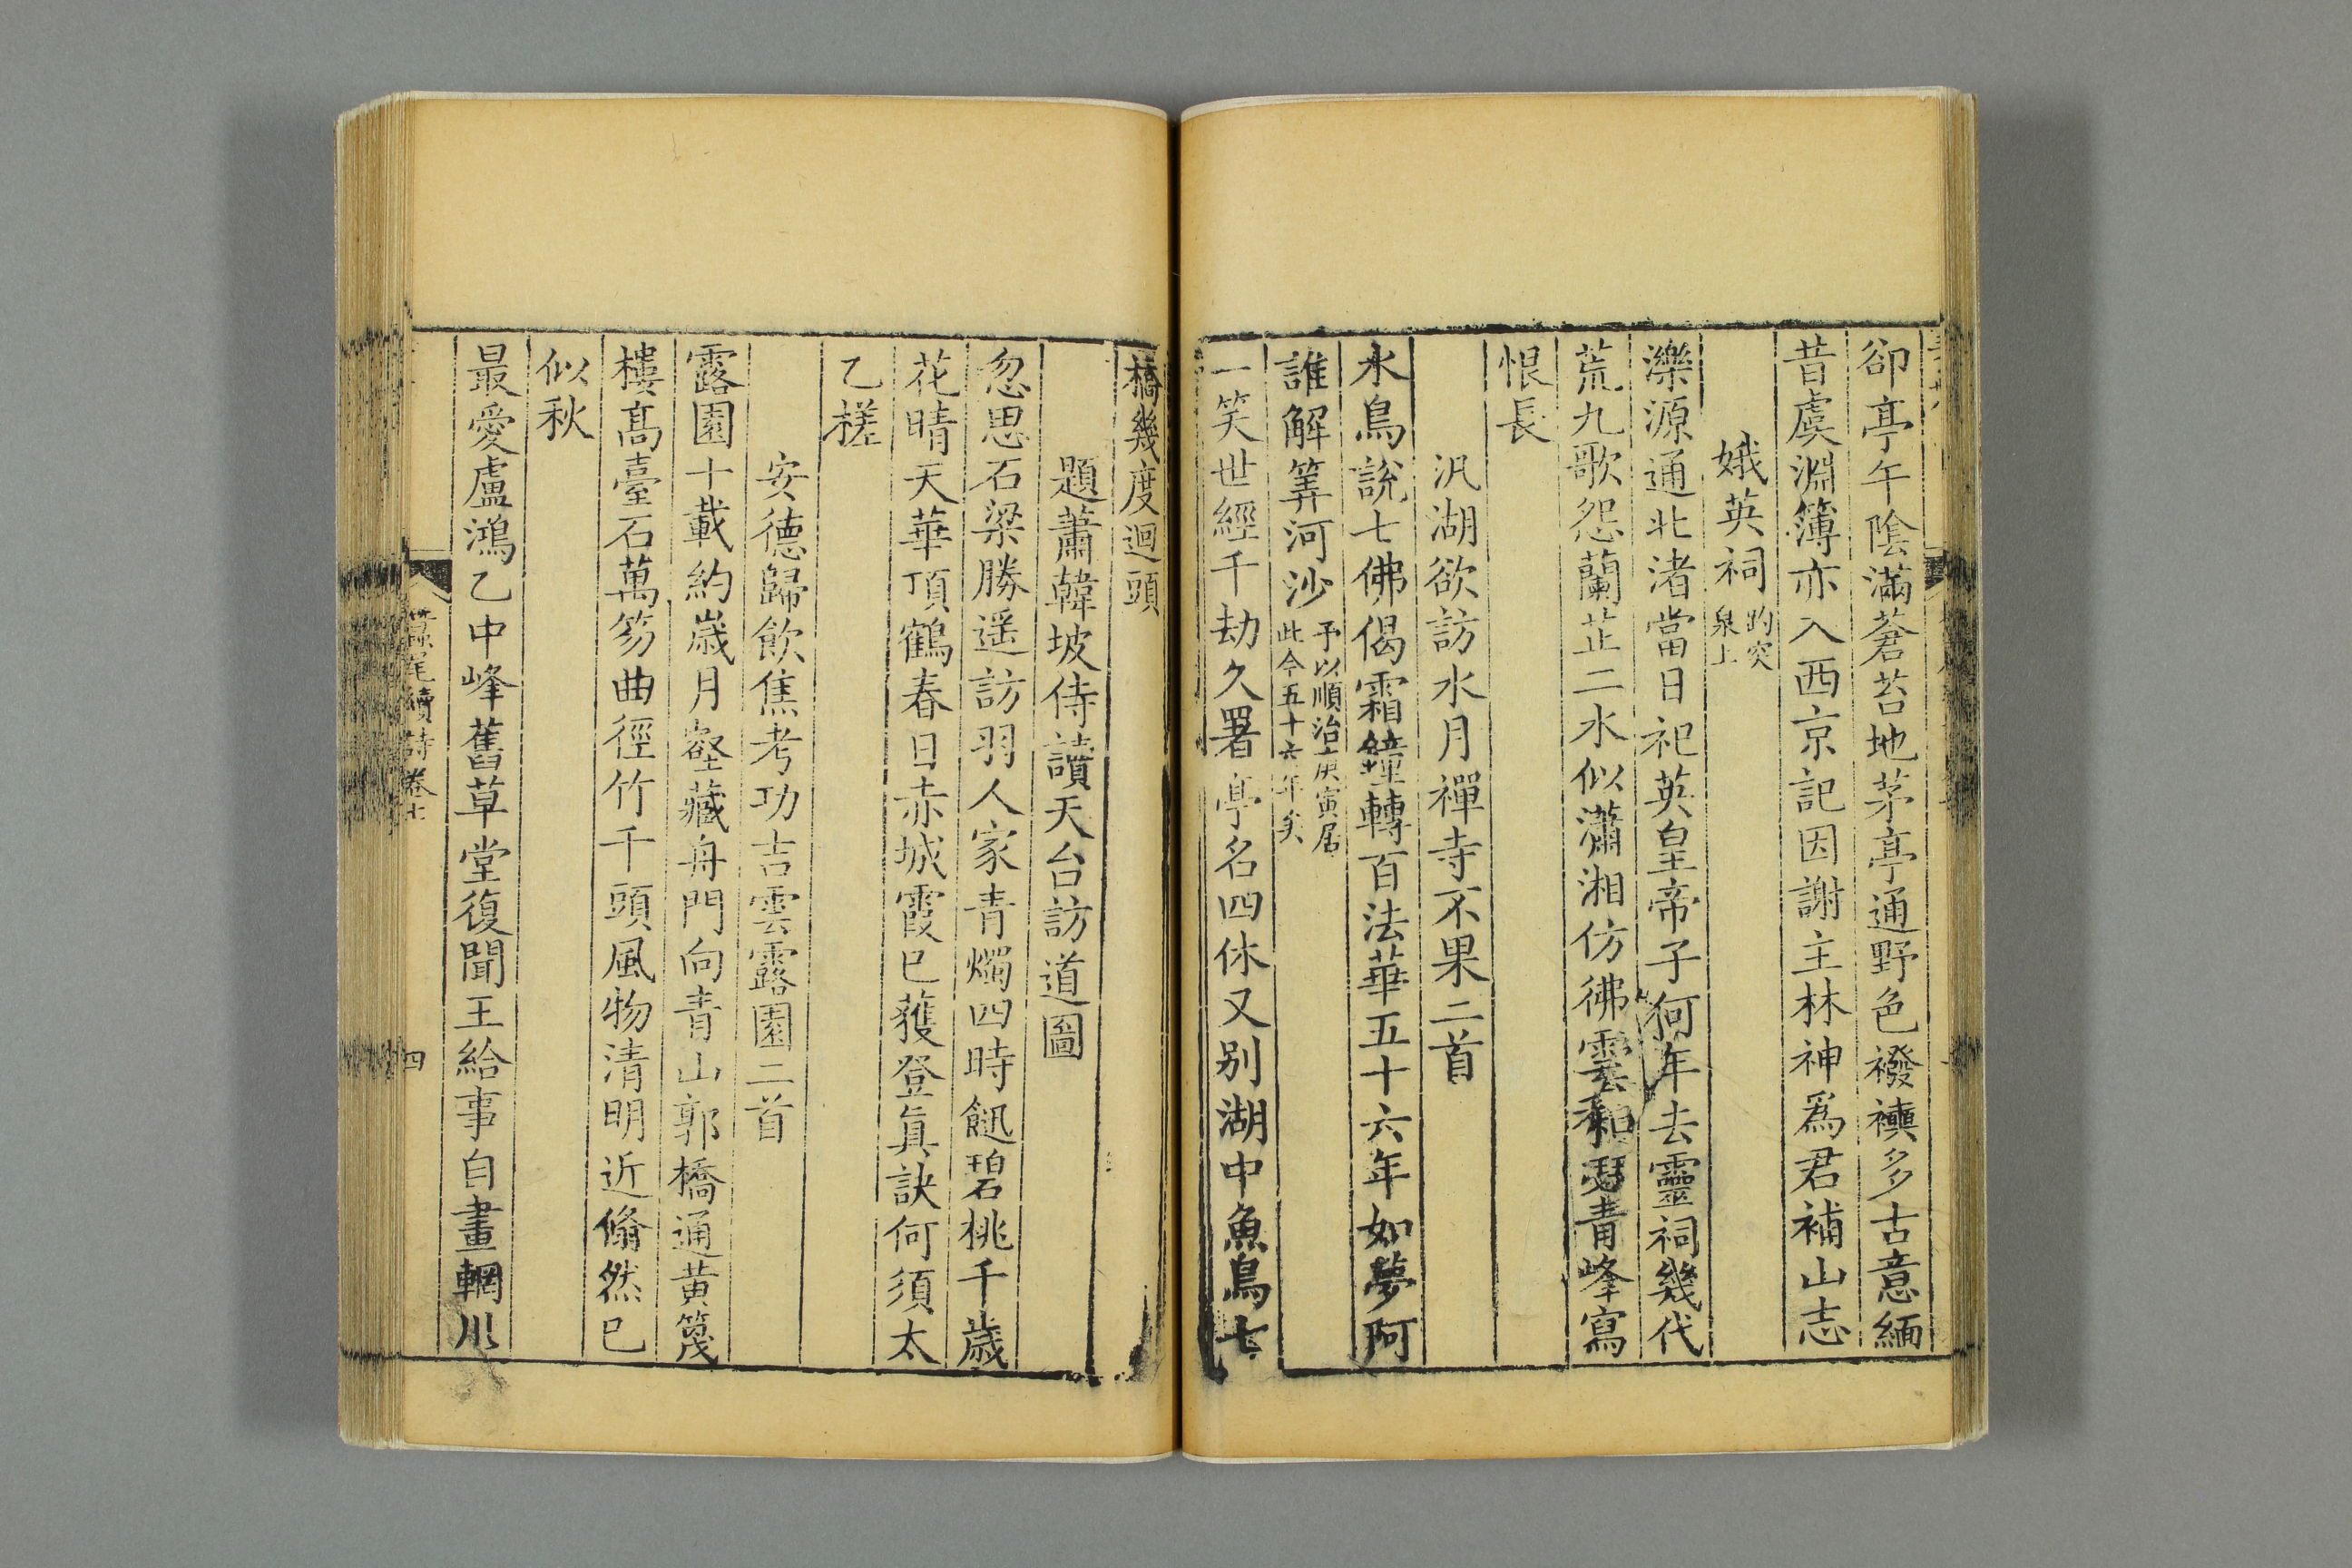 卻亭午陰滿蒼苔地茅亭通野色襏襫多古意緬
昔虞淵簿亦入西京記因謝主林神爲君補山志
娥英祠趵突泉上
濼源通北渚當日祀英皇帝子何年去靈祠幾代
荒九歌怨蘭芷二水似瀟湘仿彿雲和瑟青峰寫
恨長
汎湖欲訪水月禪寺不果二首
水鳥說七佛偈霜鐘轉百法華五十六年如夢阿
誰解筭河沙予以順治庚寅居此今五十六年矣
一笑世經千劫久署亭名四休又別湖中魚鳥七
橋幾度迴頭
題蕭韓坡侍讀天台訪道圖
忽思石梁勝遥訪羽人家青燭四時𩜾碧桃千歲
花晴天華頂鶴春日赤城霞已獲登眞訣何須太
乙槎
安德歸飲焦考功吉雲露園二首
露園十載約歲月壑藏舟門向青山郭橋通黄篾
樓髙臺石萬笏曲徑竹千頭風物清明近翛然已
似秋
最愛盧鴻乙中峰舊草堂復聞王給事自畫輞川
蠶尾續詩卷七
四